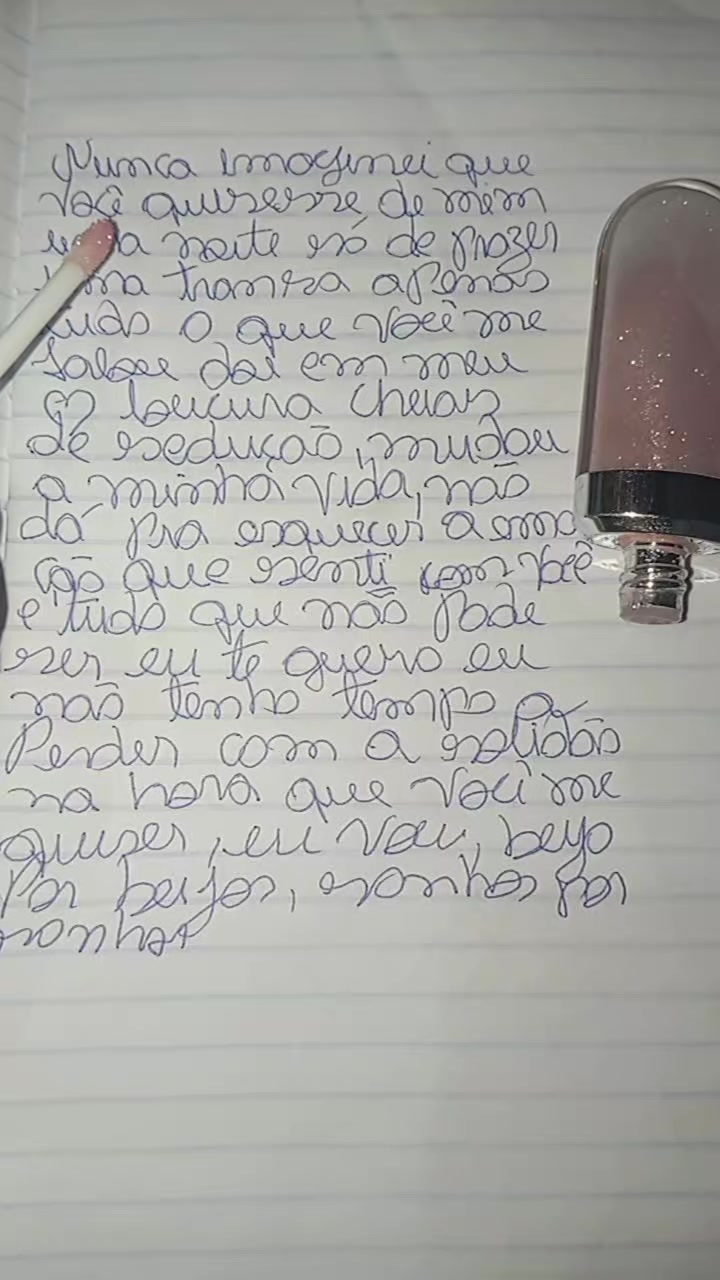 Nunca imaginei que
você quisesse de mim
uma noite só de prazer
uma transa apenas
tudo o que você me
falou daí em meu
♡ loucura cheias
de sedução, mudou
a minha vida, não
dá pra esquecer a emo
ção que senti com você
e tudo que não pode
ser eu te quero eu
não tenho tempo a
Perder com a solidão
na hora que você me
quiser, eu vou, beijo
Por beijos, sonhos por
sonhos